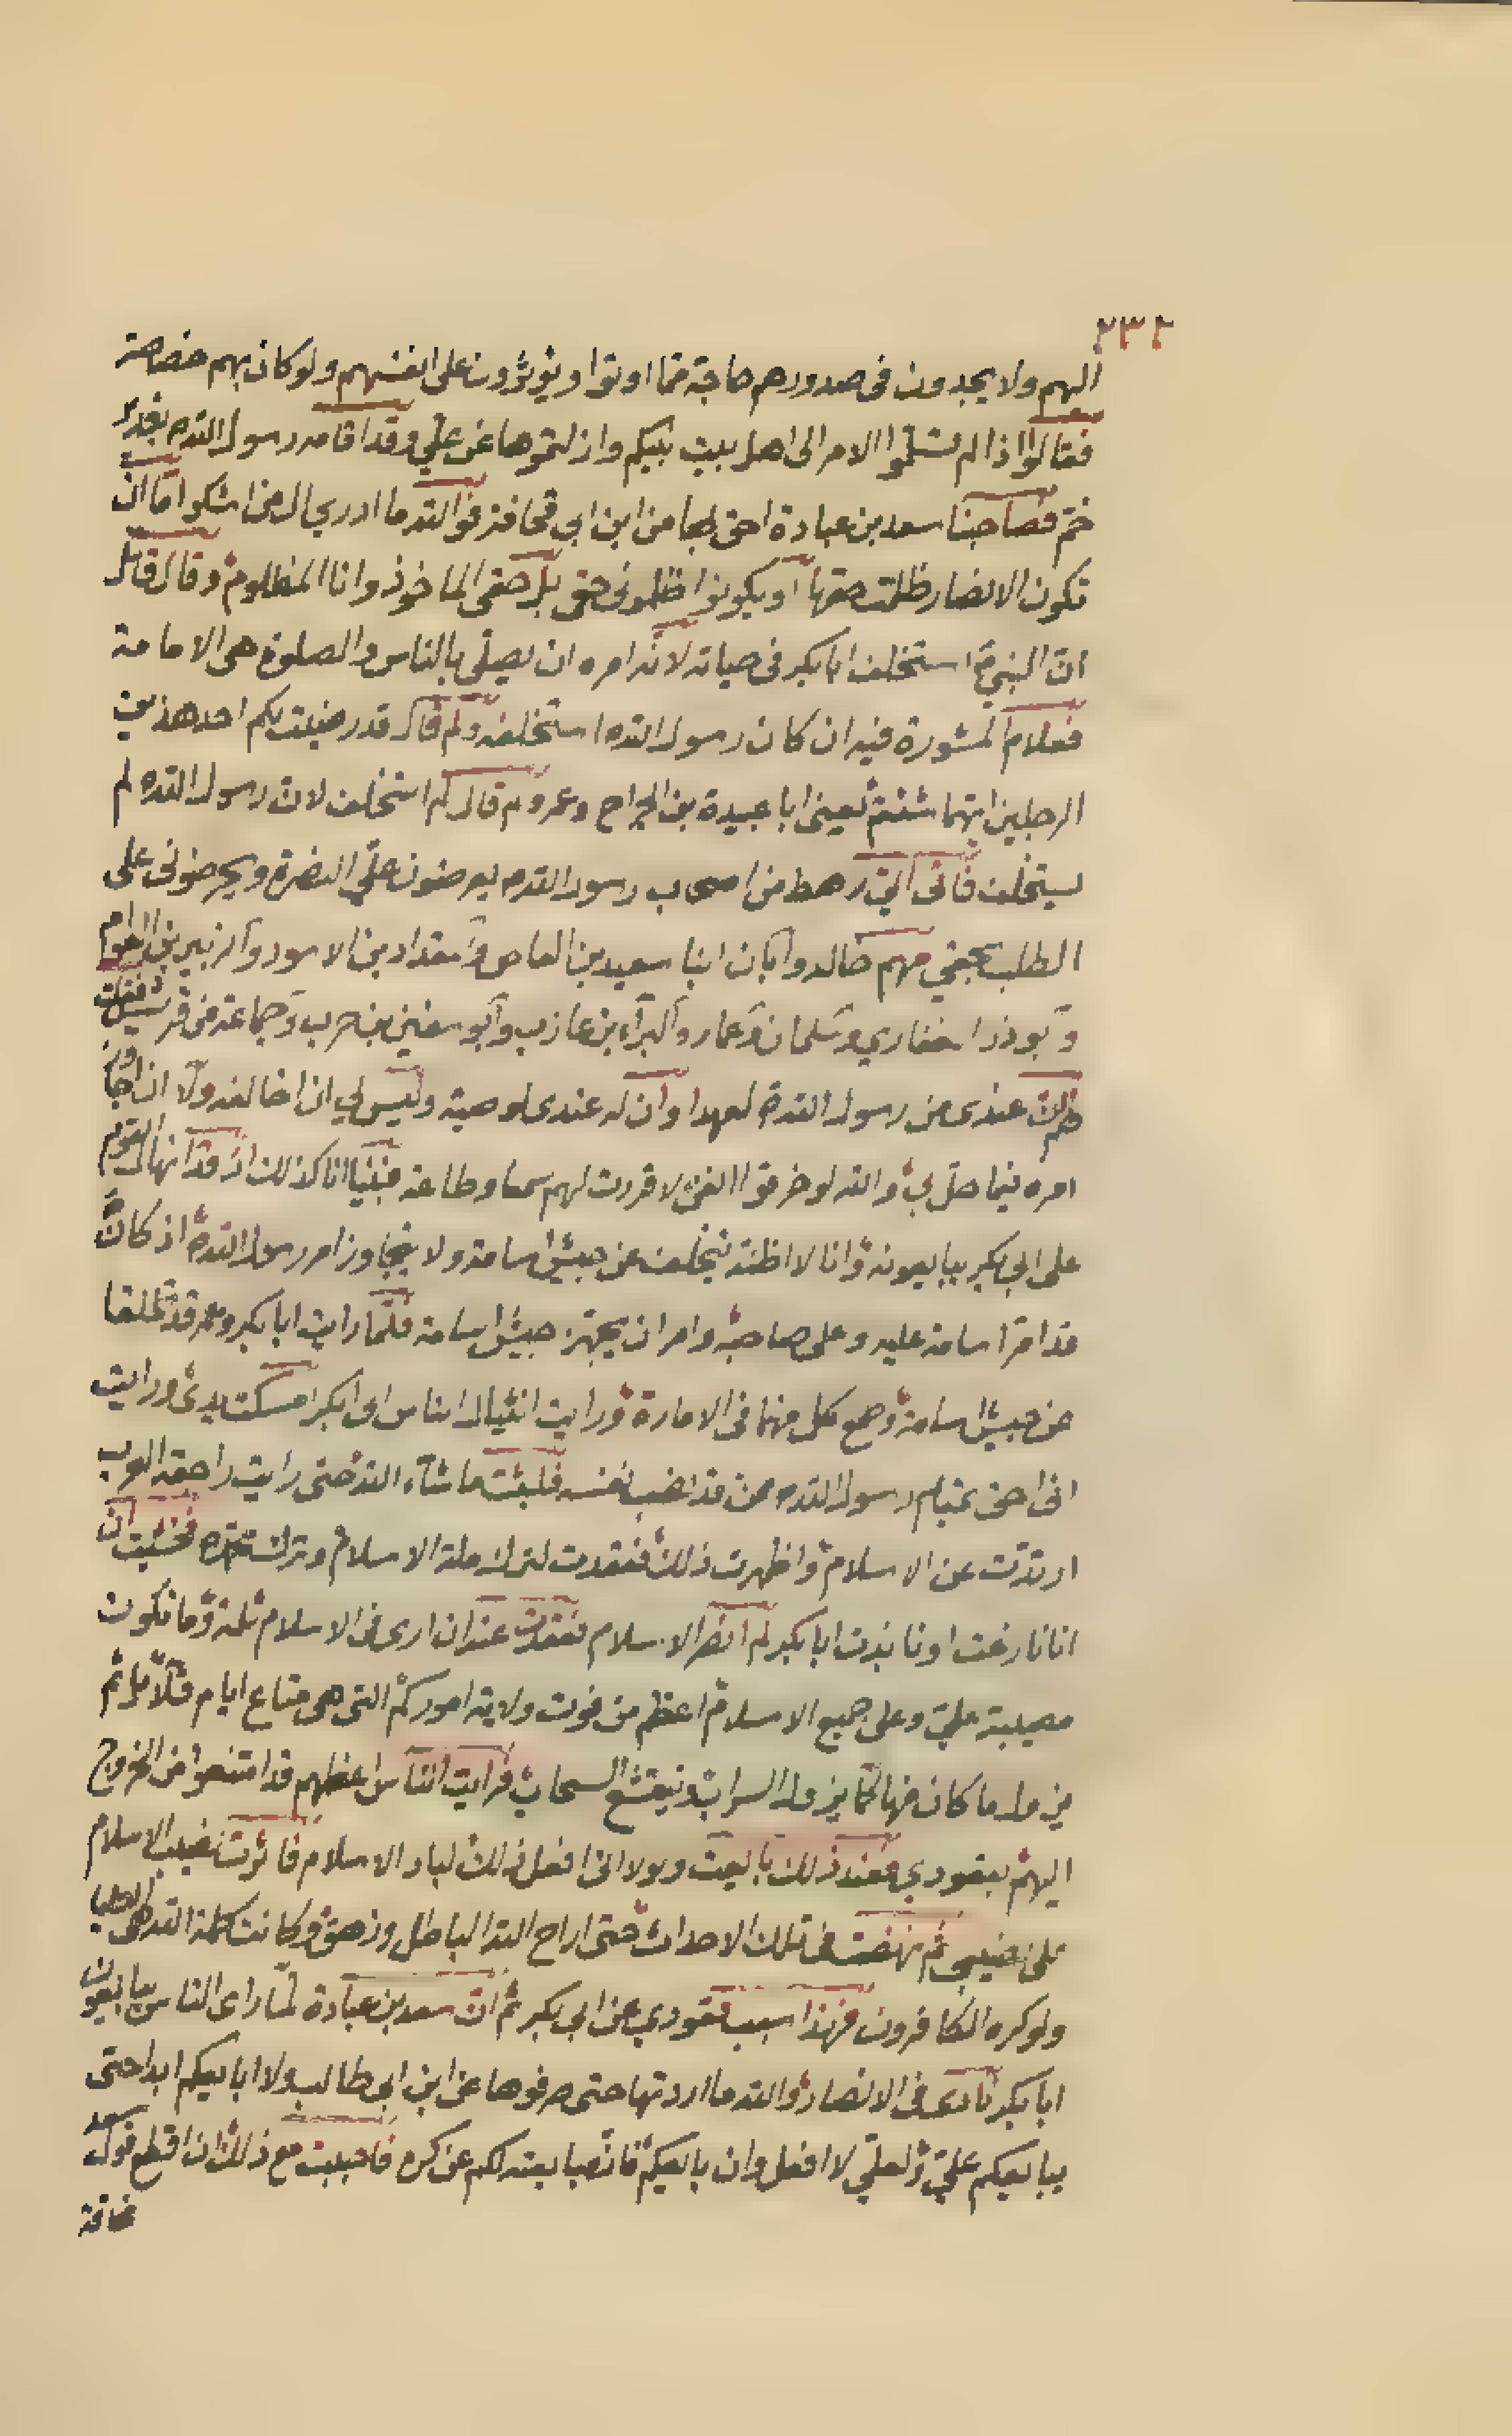 ٢٣٢
اليهم ولا يجدون فى صدورهم حاجة مما اوتوا ويؤثرون على انفسهم ولو كان بهم خصاصة
فقالوا اذا لم تسلموا الامر الى اهل بيت نبيكم وازلتموها عن علي وقد اقامه رسول الله بغدير
خم فصاحبنا سعد بن عبادة احق بها من ابن ابى قحافة فو الله ما ادري الى من اشكو امّا ان
تكون الانصار ظلمت حقها او يكونوا ظلمونى حقى بل حقى الماخوذ وانا المظلوم وقال قائل
ان النبي استخلف ابا بكر فى حياته لانه امره ان يصلى بالناس والصلوة هى الامامة
فعلام المشورة فيه ان كان رسول الله استخلفه ولم قال قد رضيت لكم احد هذين
الرجلين ايهما شئتم يعنى ابا عبيدة بن الجراح وعمر ولم قال لم استخلف لان رسول الله لم
يستخلف فاتى اليّ رهط من اصحاب رسول الله يعرضون عليّ النصرة ويحرضونى على
الطلب بحقي منهم خالد وابان ابنا سعيد بن العاص والمقداد بن الاسود والزبير بن العوام
وابو ذر الغفاري وسلمان وعمار والبراء بن عازب وابو سفين بن حرب وجماعة من قريش فقلت
لهم ان عندى من رسول الله لعهدا وان له عندى لوصية وليس لي ان اخالفه ولا ان اجاوز
امره فيما حل بي والله لو خرموا انفى لاقررت لهم سمعا وطاعة فبينا انا كذلك اذ قد انهال القوم
على ابي بكر يبايعونه وانا لا اظنه يتخلف عن جيش اسامة ولا يتجاوز امر رسول الله اذ كان
قد امر اسامة عليه وعلى صاحبه وامر ان يجهز جيش اسامة فلما رايت ابا بكر وعمر قد تخلفا
عن جيش اسامة وطمع كل منهما فى الامارة ورايت انثيال الناس الى ابى بكر امسكت يدى ورايت
انى احق بمقام رسول الله ممن قد نصب نفسه فلبثت ما شآء الله حتى رايت راجعة العرب
ارتدت عن الاسلام واظهرت ذلك فنقدت لترك ملة الاسلام وترك فخشيت ان
انا نازعت او نابذت ابا بكر لم انصر الاسلام فقعدت عنه ان ارى فى الاسلام ثلمة وما تكون
مصيبة عليّ وعلى جميع الاسلام اعظم من فوت ولاية اموركم التى هى متاع ايام قلائل ثم
يزول ما كان منها كما يزول السراب وينقشع السحاب فرايت الناس اعظمهم قد امتنعوا من الخروج
اليهم بقعودي فعند ذلك بايعت ولولا انى افعل ذلك لباد الاسلام فاثرت نصيب الاسلام
على نصيبي ثم نهضت فى تلك الاحداث حتى اراح الله الباطل وزهق وكانت كلمة الله هى العليا
ولو كره الكافرون فهذا سبب قعودي عن ابي بكر ثم ان سعد بن عبادة لمّا راى الناس يبايعون
ابا بكر نادى فى الانصار والله ما اردتها حتى صرفوها عن ابن ابى طالب ولا ابايعكم ابدا حتى
يبايعكم عليّ ولعلي لا افعل وان بايعكم فانما بايعته لكم عن كره فاحببت مع ذلك ان اقطع قول سعد
مخافة